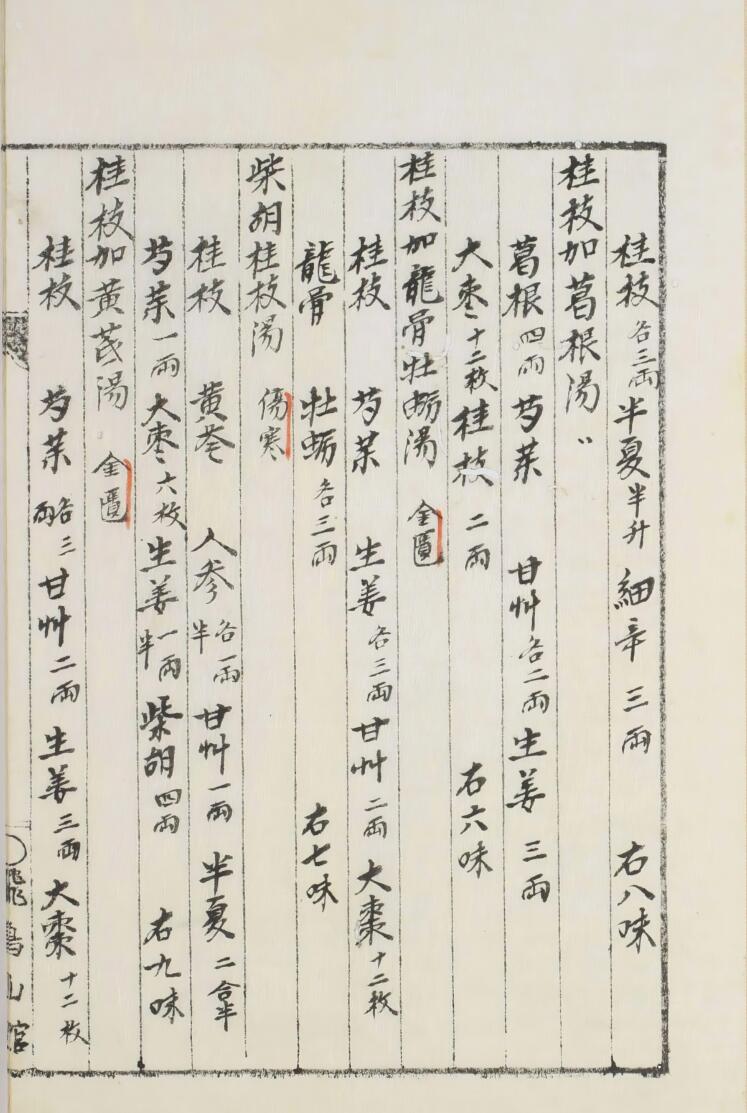 桂枝各三兩半夏半升 細辛三兩 右八味
桂枝加葛根湯〃
葛根四兩芍藥 甘艸各二兩生姜三兩
大棗十二枚桂枝二兩 右六味
桂枝加龍骨牡蛎湯 金匱
桂枝 芍藥 生姜各三兩甘艸二兩大棗十二枚
龍骨 牡蛎各三兩 右七味
柴胡桂枝湯 傷寒
桂枝 黄芩 人參各一兩半甘艸一兩半夏二合半
芍藥一兩大棗六枚生姜一兩半柴胡四兩 右九味
桂枝加黄芪湯 金匱
桂枝 芍藥各三兩甘艸二兩生姜三兩大棗十二枚